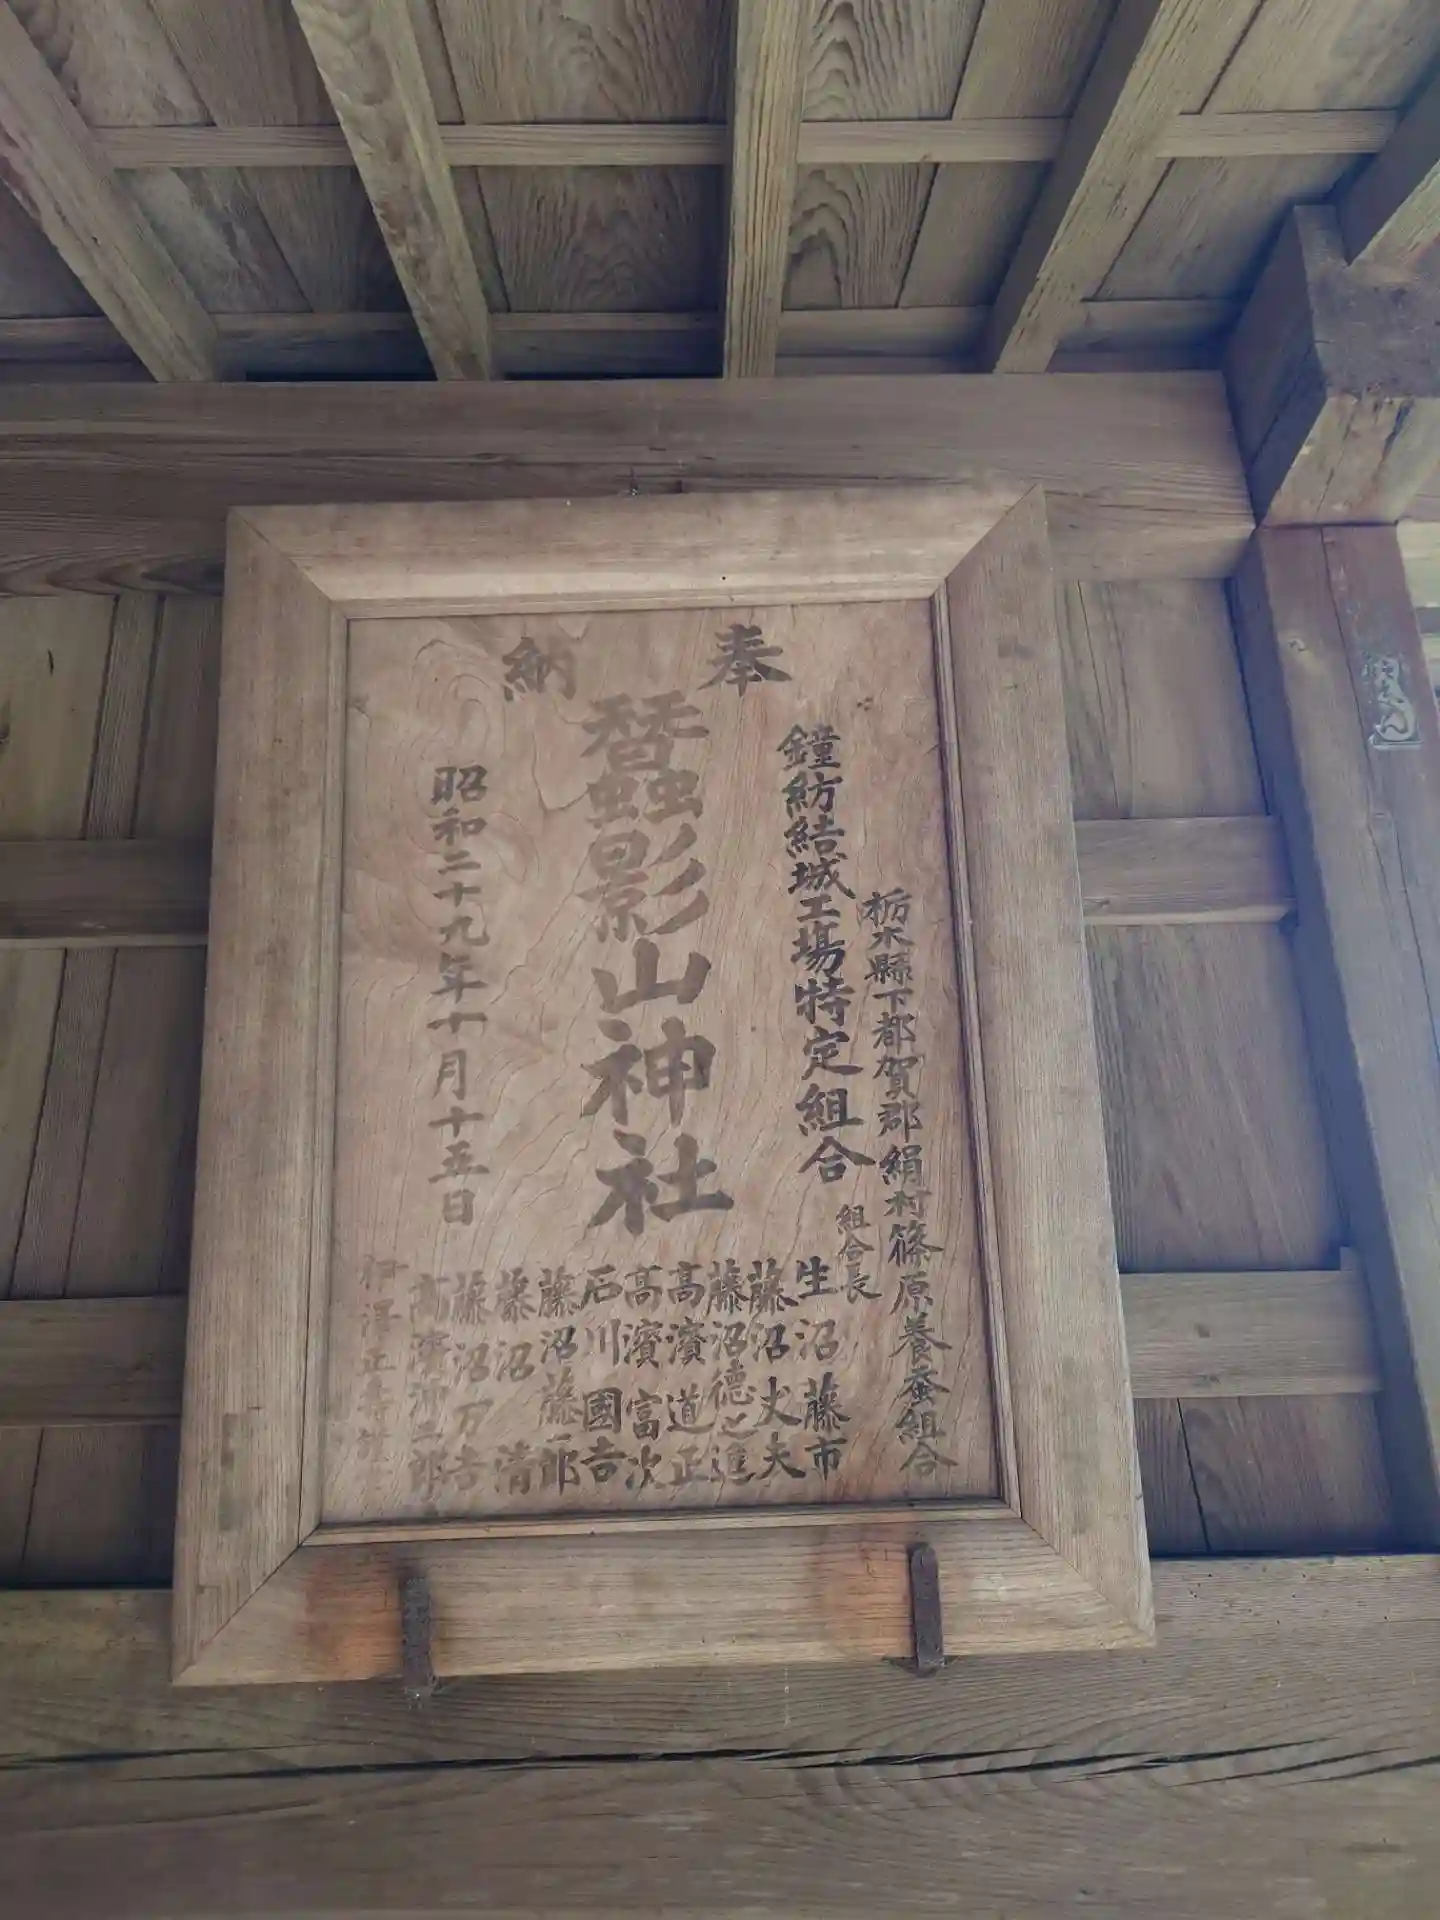 奉納
栃木縣下都賀郡絹村篠原養蚕組合
鐘紡結城工場特定組合
蠶影山神社
昭和二十九年十月十五日
組合長
生沼藤市
藤沼丈夫
藤沼德之進
高濱道正
高濱富次
石川國吉
藤沼藤一郎
藤沼清
藤沼万吉